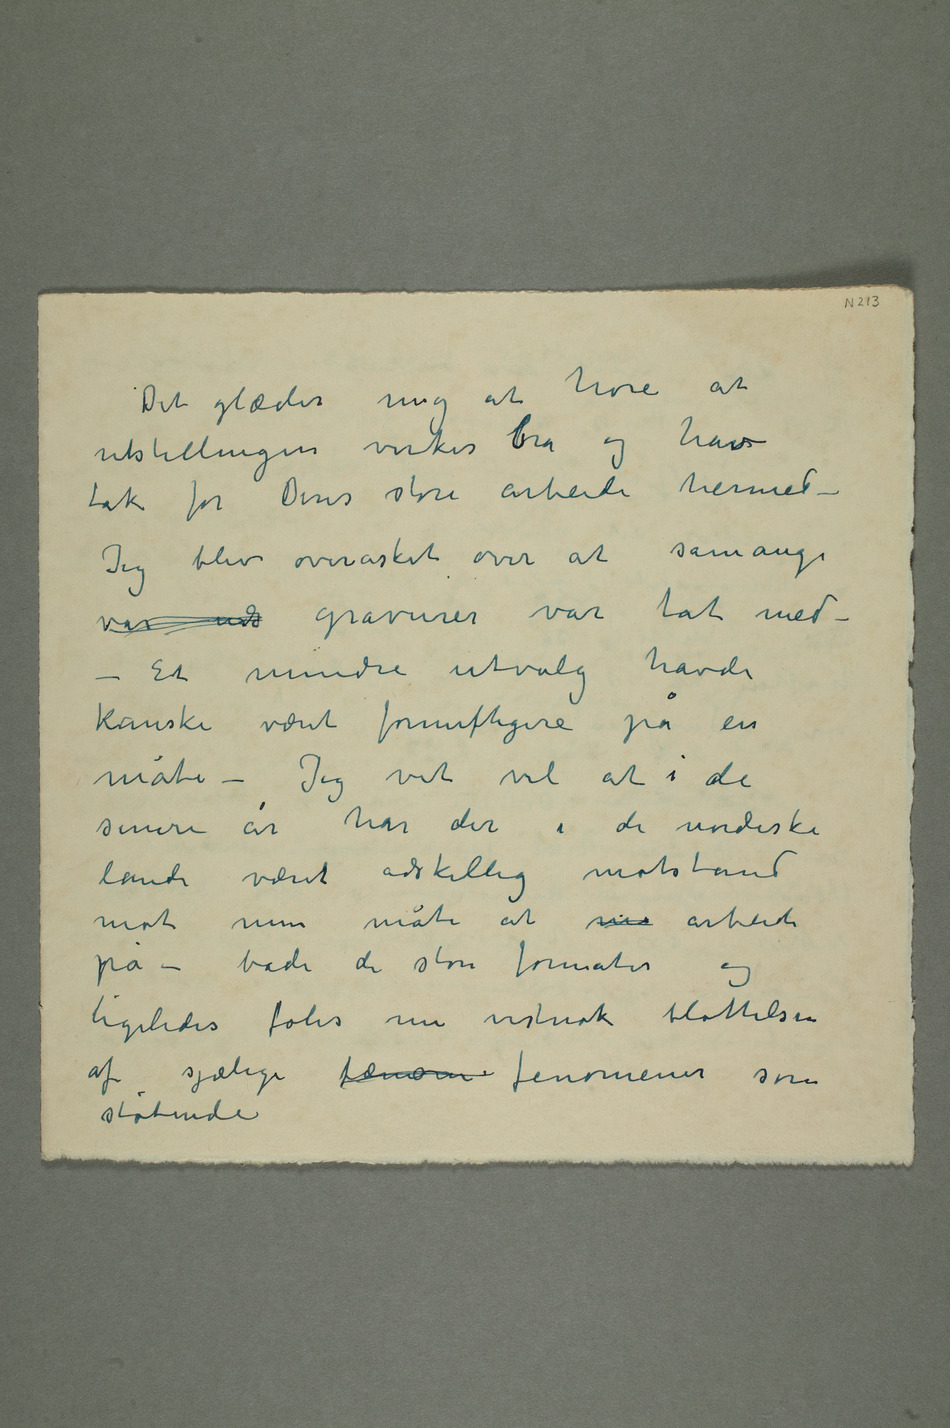 N 213
Det glæder mig at høre at
utstillingen virker bra og hav
tak for Deres store arbeide hermed –
Jeg blev overasket over at samange
var uds gravurer var tat med –
– Et mindre utvalg havde
kanske været fornuftigere på en
måte – Jeg vet vel at i de
senere år har der i de nordiske
lande været adskillig motstand
mot min måte at arbeide
på – både de store formater og
ligeledes føles nu vistnok blottelsen
af sjælige fænom fenomener som
støtende